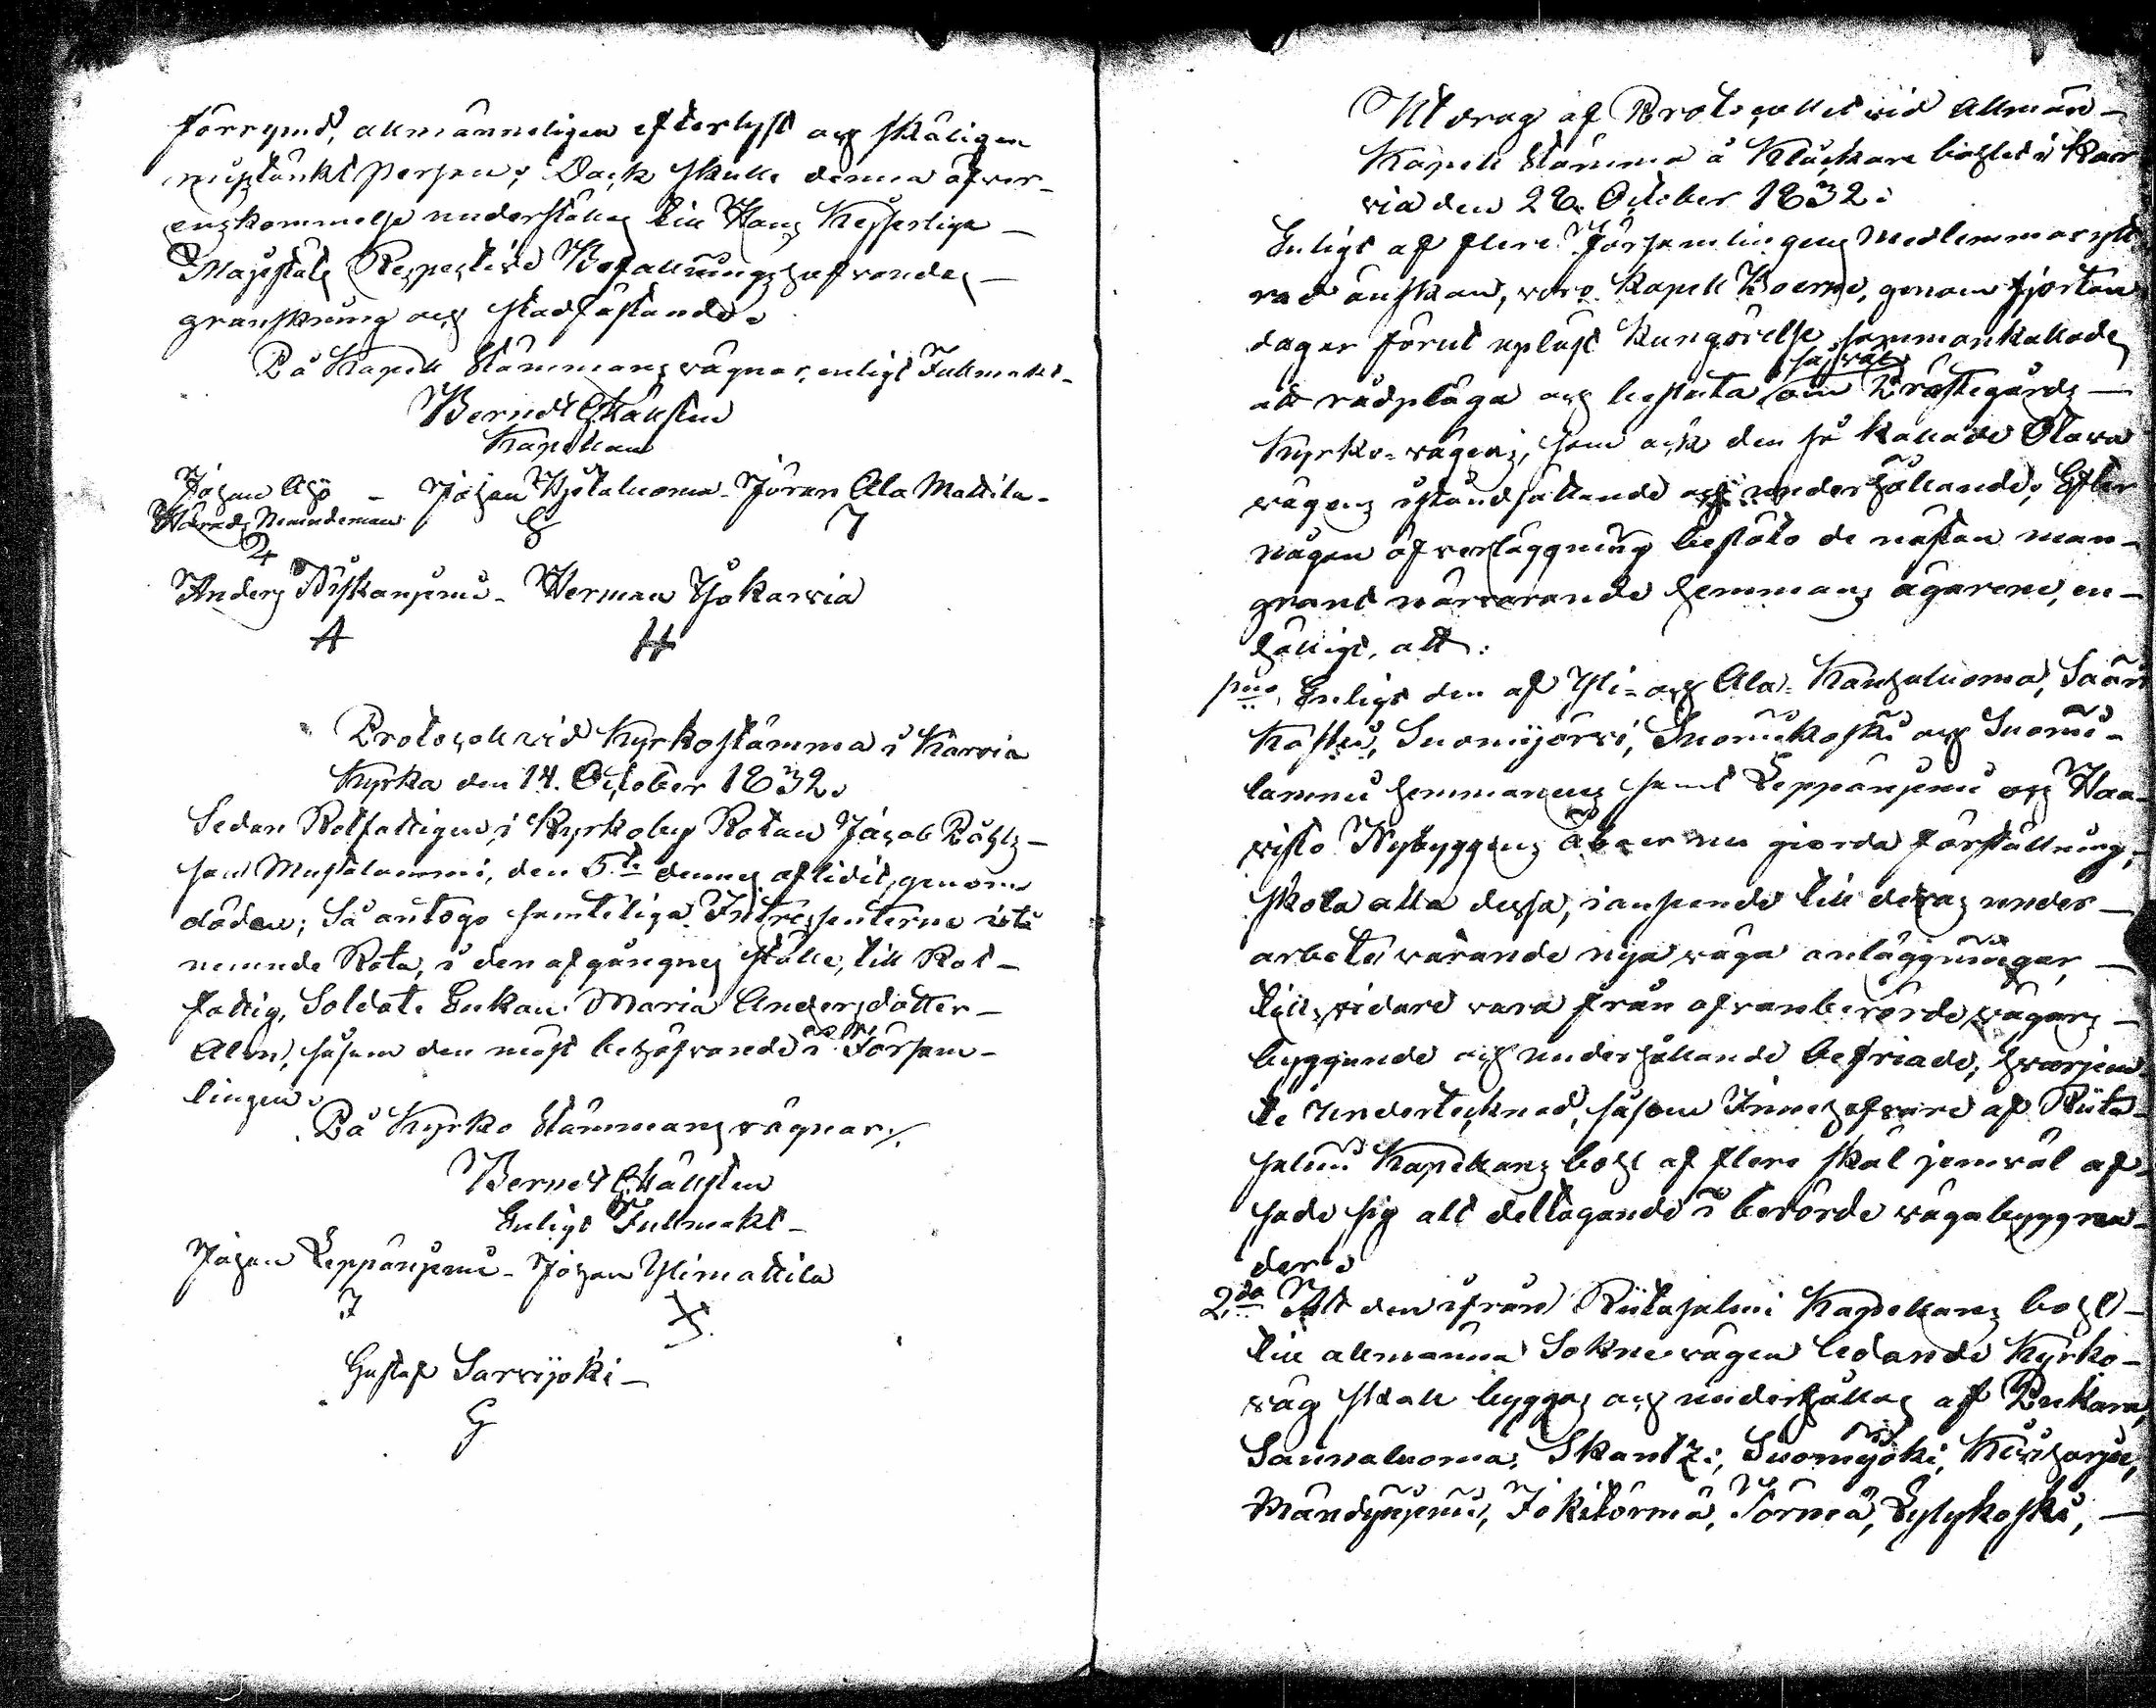 förrymd, allmänneligen efterlyst och skäligen
misstänkt person; Dock skulle denna öfver-
enskommelse underställas Till Hans Kejserliga
Majestäts Respective Befallningshafvandes
granskning och stadfästande.
På Kapell Stämmans vägnar, enligt Fullmakt
Bernd Hällsten
Kapellan
Johan Ahö - Johan Hjetaluoma - Jöran Ala Mattila -
Härads Nämndeman
Anders Riskanjemi - Herman Ylöкarvia
A H
Protocoll vid Kyrkostämma i Karvia
Kyrka den 14. October 1832.
Sedan Rotfattigen i Kyrkoby Rotan Jacob
son Mustalammi, den 5te dennes aflidit, genom
döden; Så antogo samteliga Intressenterne i ofta
nämnde Rota, i den afgångnes ställe, till Rot-
fattig, Soldats Enkan Maria Andersdotter
Alm, såsom den mest behöfvande i Försam-
lingen.
På Kyrko Stämmans vägnar
Bernd Hällsten
Enligt Fullmakt
Johan Leppänjemi - Johan Ylimattila
J
Gustaf Sarvijoki
G
Utdrag af Protocollet vid Allmän
Kapell Stämma å Klåckare bohlet i Kar
via den 28. October 1832.
Enligt af flere Församlingens Medlemmar ytt
rad önskan, voro Kapell Boerne, genom fjorton
dagar förut upläst Kungörelse sammankallade
såväl
att rådpläga och besluta om Prästegårds
Kyrko-vägens, som ock den så kallade
vägens iståndsättande och underhållande; Efter
någon öfverläggning beslöto de nästan man-
grant närvarande hemmans ägarene, en-
hälligt, att:
1mo Enligt den af Yli- och Ala- Kauhaluoma, Saari
Koski, Suomijärvi, Suomikoski och Suomi-
lammi hemmanens samt Leppänjemi och Haa
visto Nybyggens Åboer nu gjorda föreställning,
skola alla dessa, i anseende till deras under
arbete varande nya väga anläggningar,
tills vidare vara från ofvanberörde vägars
byggande och underhållande befriade, hvarjem
te Undertecknad, såsom Innehafvare af Riita-
salmi Kapellans bohl af flere skäl jemväl af-
sade sig allt deltagande i berörde vägabyggna-
der.
2do Att den ifrån Riitasalmi Kapellans bohl
till allmänna Sokne vägen ledande Kyrko-
väg skall byggas och underhållas af Pukara,
Saunaluoma, Skantz:, Suomijoki, Kiviharju,
Mändynjemi, Jokitörmä, Törmä, Lylykoski,